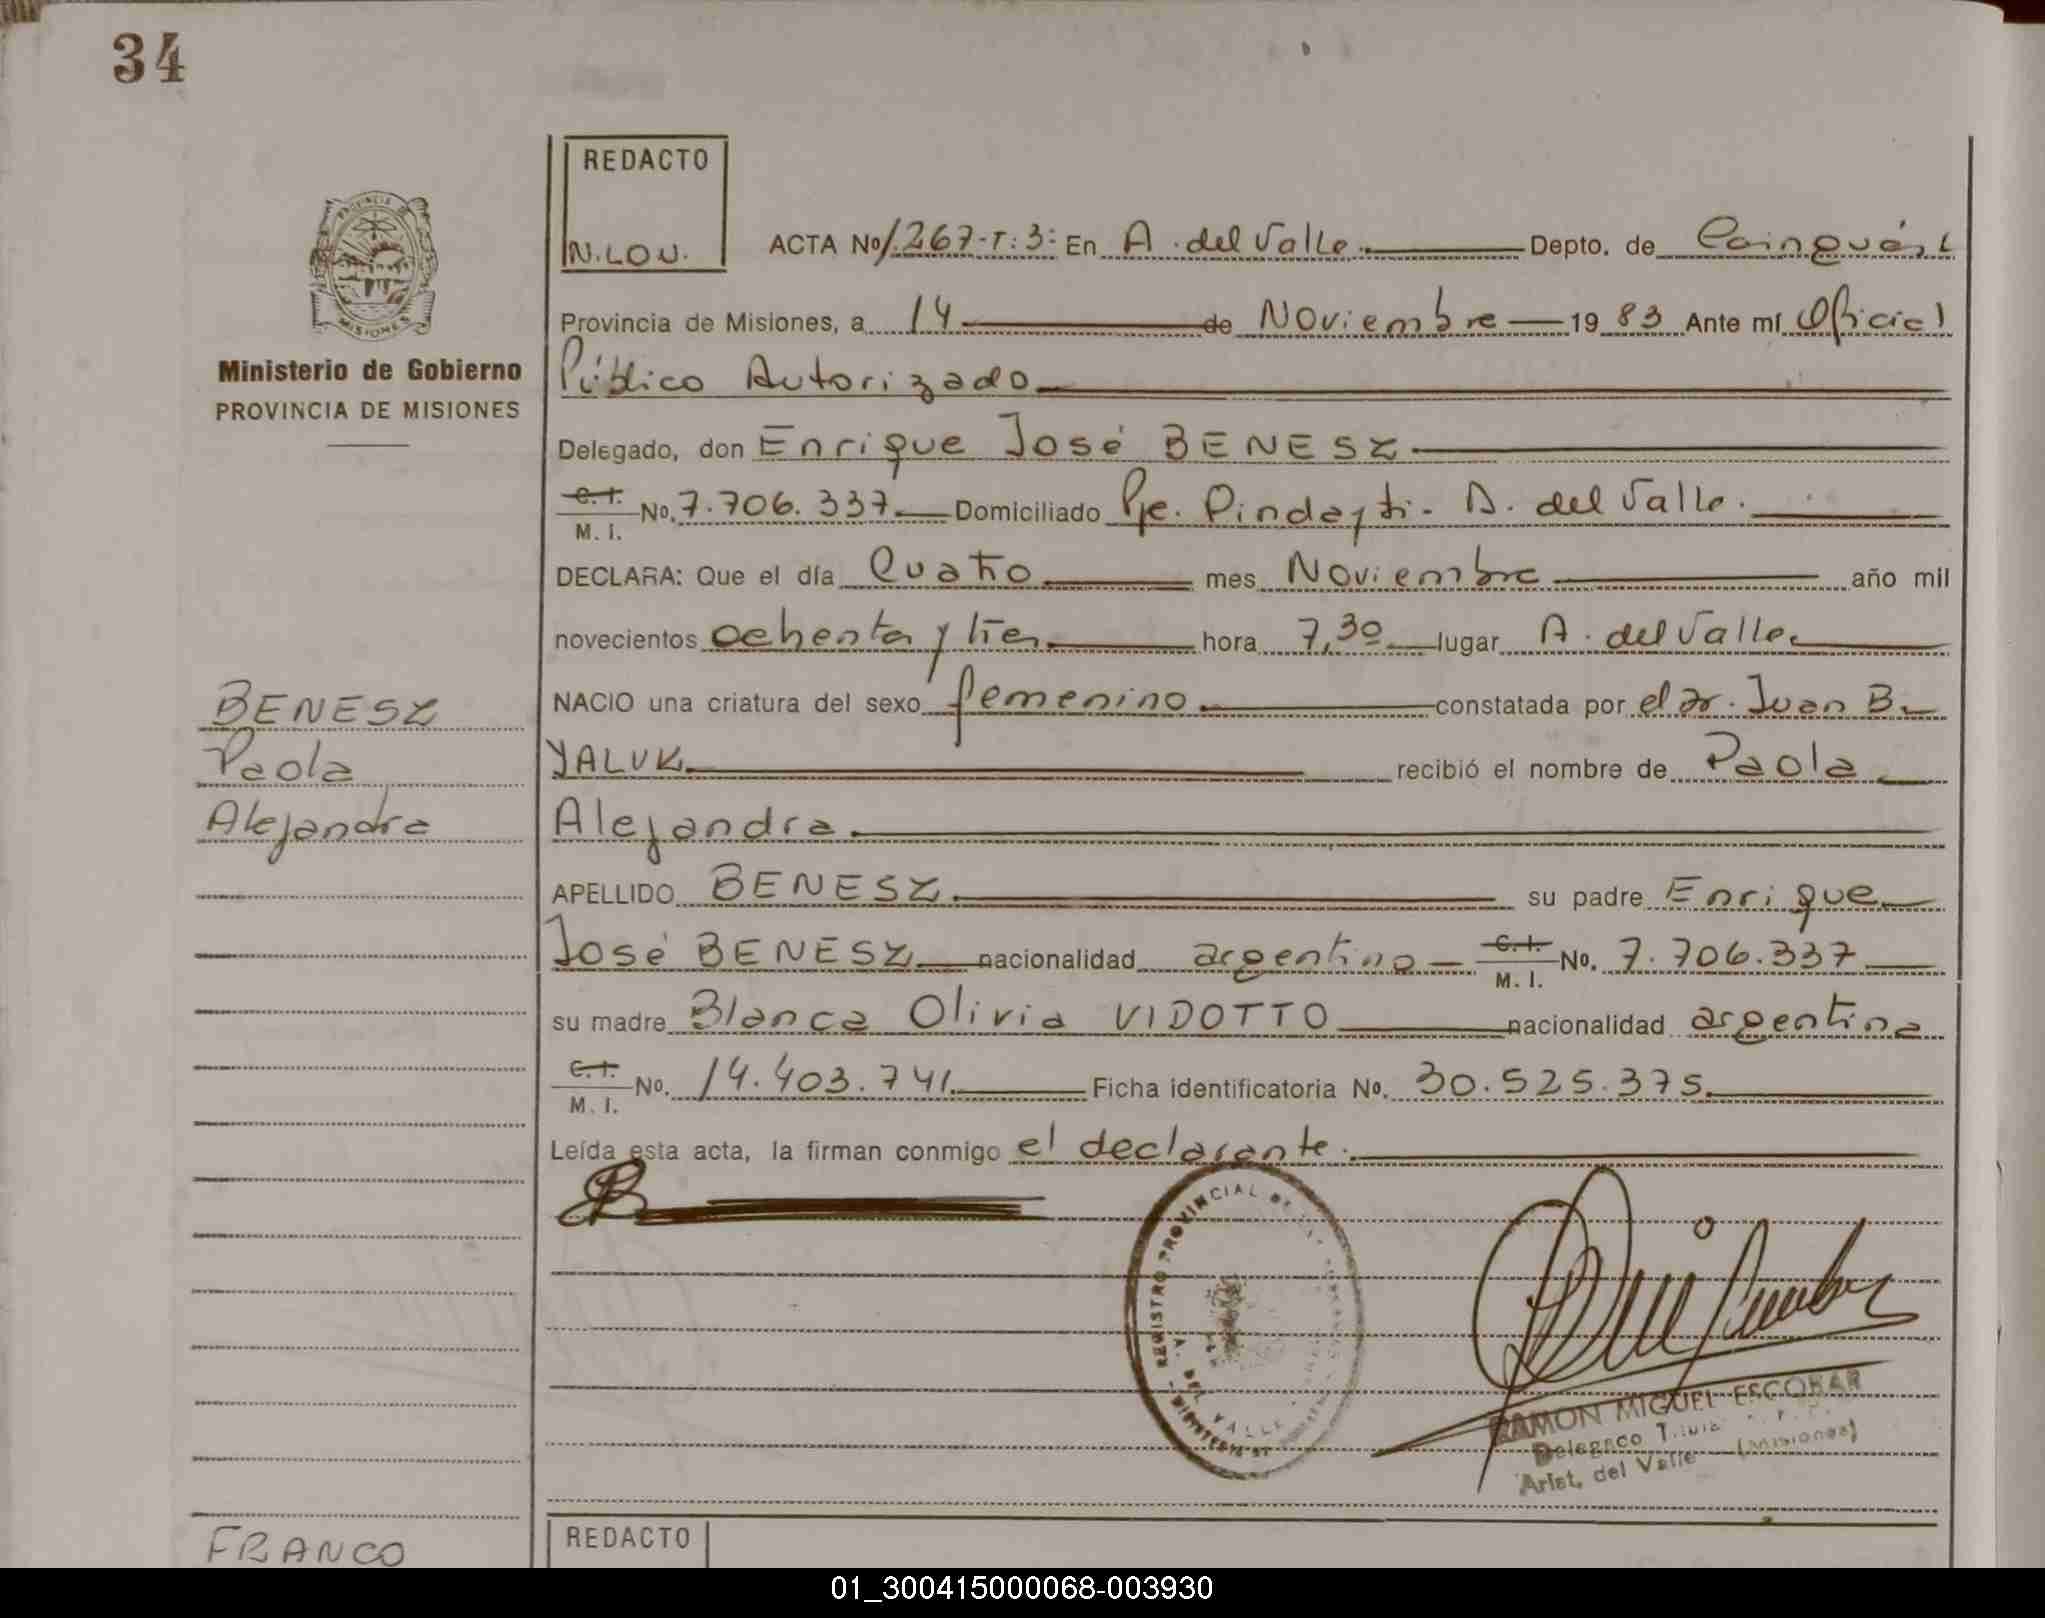 34
REDACTO
N.LOU.
ACTA Nº 1.267-T:3: En A. del Valle. Depto. de Cainguás,
Provincia de Misiones, a 14 de Noviembre 19 83 Ante mí Oficial
Público Autorizado
Ministerio de Gobierno
PROVINCIA DE MISIONES
Delegado, don Enrique José BENESZ
C.I. M. I. No. 7.706.337. Domiciliado Pje. Pindayti - A. del Valle.
DECLARA: Que el día Cuatro mes Noviembre año mil
novecientos ochenta y tres hora 7,30 lugar A. del Valle
NACIO una criatura del sexo femenino constatada por el Dr. Juan B.
YALUK recibió el nombre de Paola
Alejandra.
BENESZ
Paola
Alejandra
APELLIDO BENESZ su padre Enrique
José BENESZ nacionalidad argentino C.I. M. I. No. 7.706.337
su madre Blanca Olivia VIDOTTO nacionalidad argentina
C.I. M. I. No. 14.403.741. Ficha identificatoria No. 30.525.375.
Leída esta acta, la firman conmigo el declarante.
REGISTRO PROVINCIAL DE
A. DEL VALLE
RAMON MIGUEL ESCOBAR
Delegado
Arist. del Valle (Misiones)
FRANCO
REDACTO
01_300415000068-003930